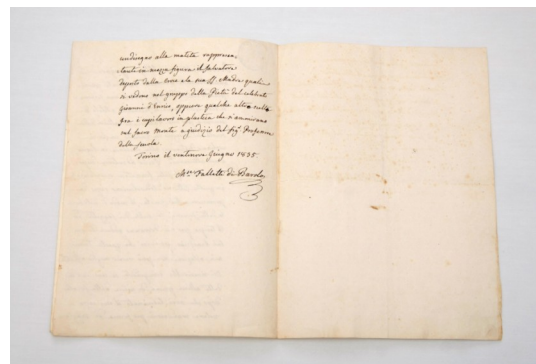 un disegno alla matita rappresen
tante in mezza figura il Salvatore
deposto dalla Croce e la sua SS. Madre quali
si vedono nel gruppo della Pietà del celebrato
Giovanni d'Enrico, oppure qualche altra
fra i capi lavoro in plastica che si ammirano
nel sacro Monte a giudizio del Sig.r Professore
della scuola.
Torino il ventinove Giugno 1835.
M.se Falletti di Barolo